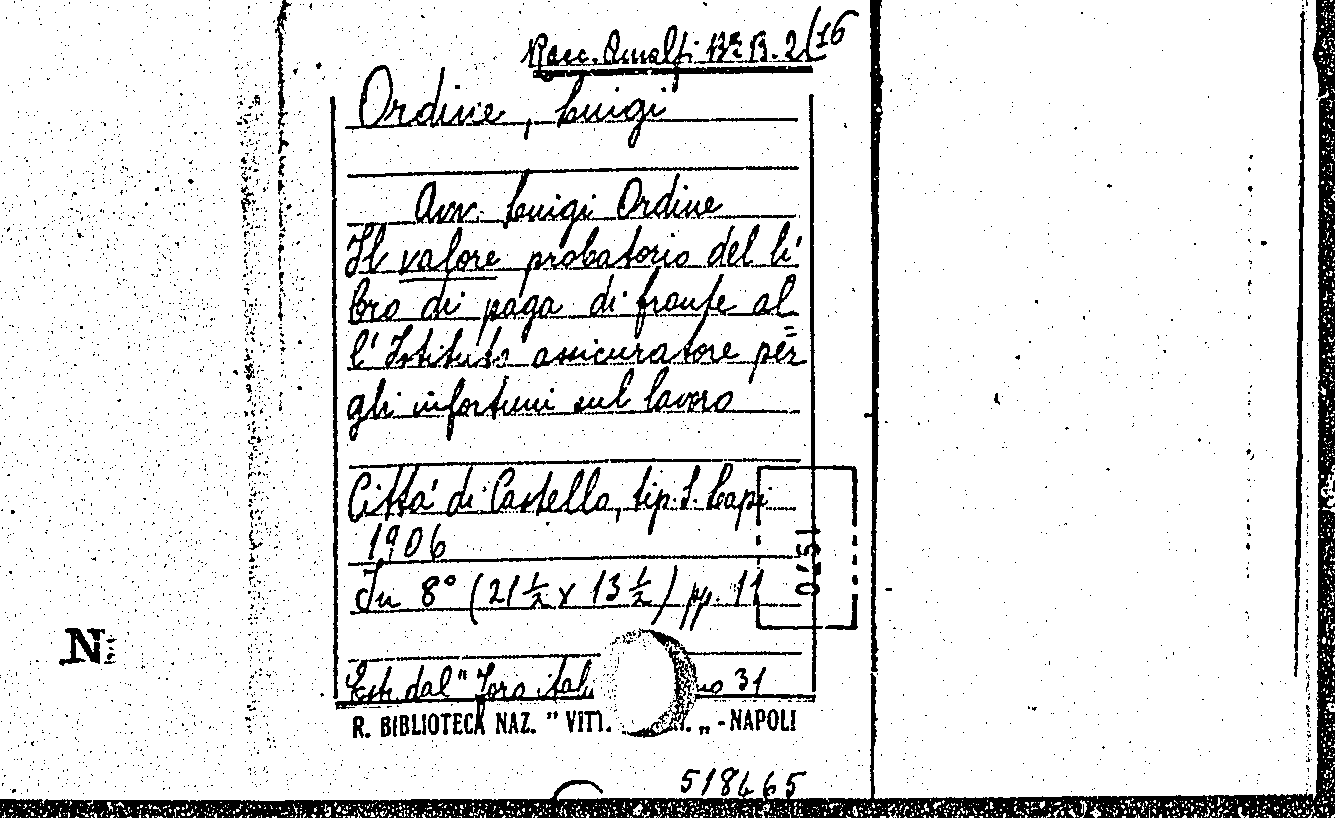 Racc. Amalfi Bª B. 2/16
Ordine, Luigi
Avv. Luigi Ordine
Il valore probatorio del li
bro di paga di fronte al
l'Istituto assicuratore per
gli infortuni sul lavoro
Città di Castello, tip. S. Lapi
1906
In 8° (21 ½ x 13 ½) pp. 11
Estr. dal "Foro ital 31
R. BIBLIOTECA NAZ. " VITT. „ - NAPOLI
518465
N